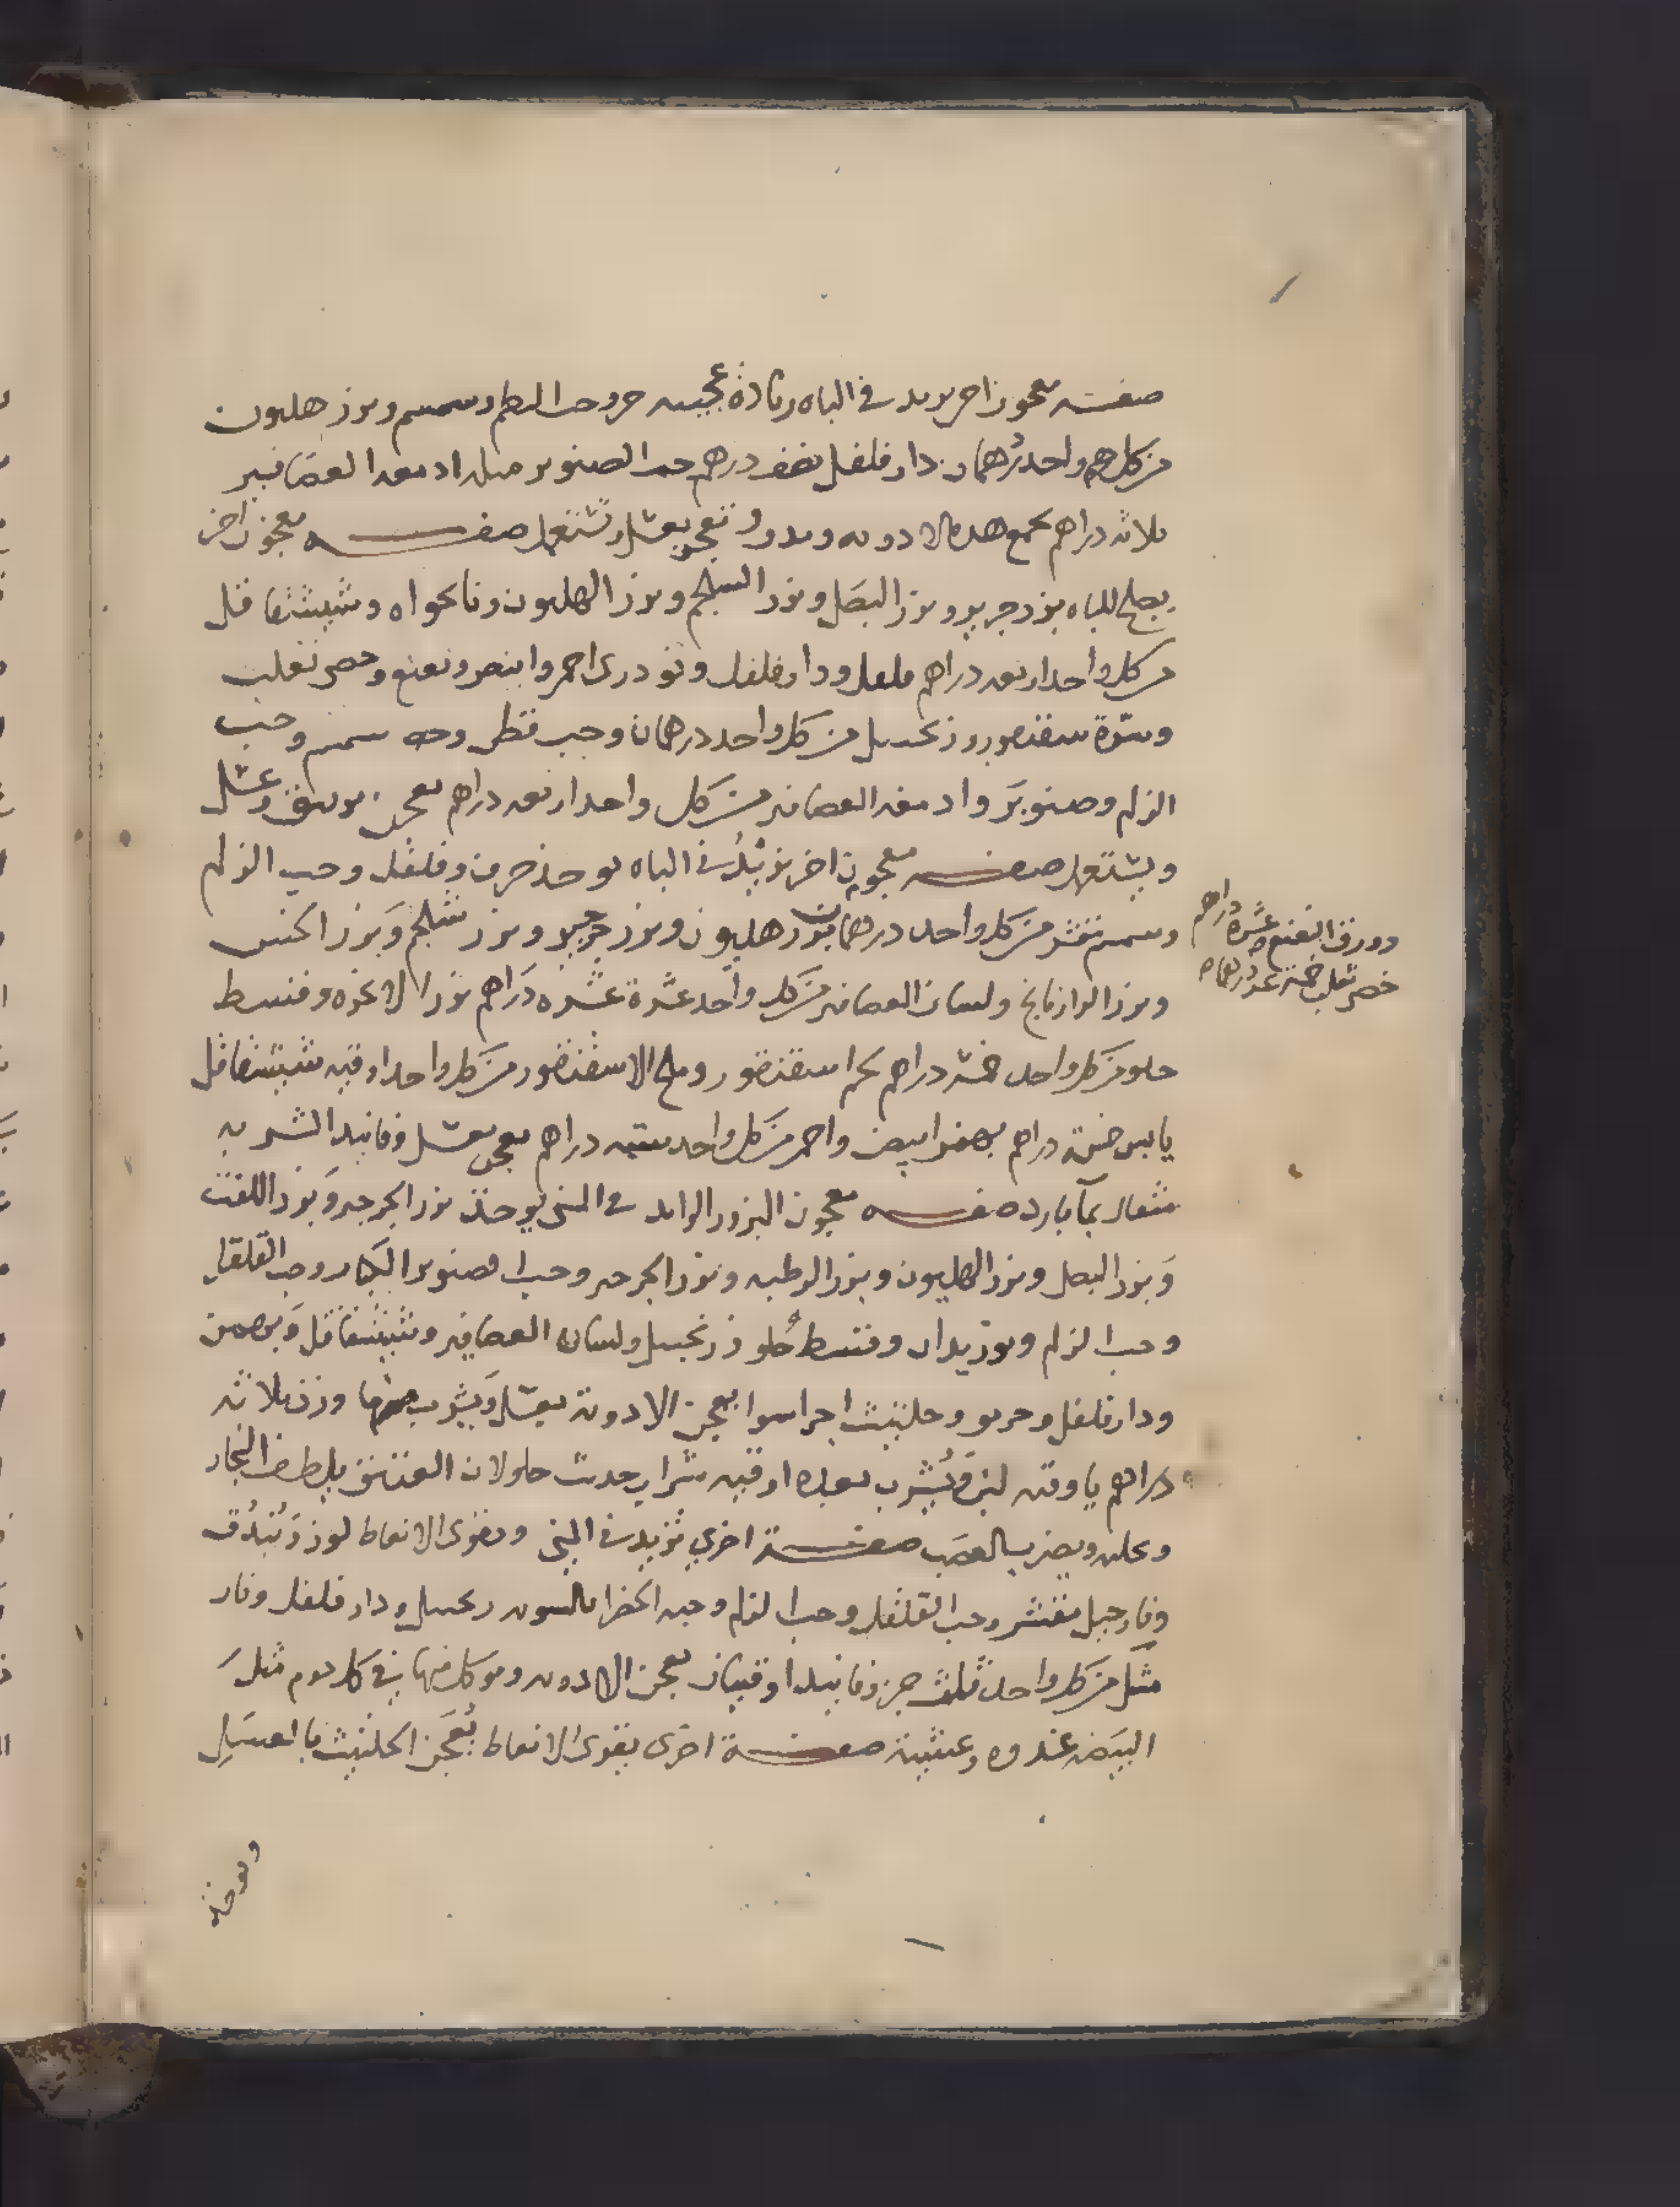 صفة معجون اخر يزيد في الباه زيادة عجيبه حرو حب البطم وسمسم وبزر هليون
من كل واحد درهمان دار فلفل نصف درهم حب الصنوبر مثله ادمغه العصافير
ثلاثه دراهم تجمع هذه الادويه وتعجن بعسل وتستعمل صفه معجون اخر
يصلح للباه بزر جرجير وبزر البصل وبزر السلجم وبزر الهليون ونانخواه وشيشقاقل
من كل واحد اربعه دراهم فلفل ودار فلفل وتودري احمر وابيض ونعنع وخصى ثعلب
وسرة سقنقور وزنجبيل من كل واحد درهمان وحب قطن وحبه سمسم وحب
الزلم وصنوبر وادمغه العصافير من كل واحد اربعه دراهم يعجن وعسل
ويستعمل صفه معجون اخر يزيد في الباه يوخذ حرف وفلفل وحب الزلم
وسمسم مقشر من كل واحد درهمان بزر هليون وبزر جرجير وبزر شلجم وبزر الخس
دورق النعنع عشرة دراهم
خصى ثعلب خمسة عدد
وبزر الرازيانج ولسان العصافير من كل واحد عشرة عشره دراهم بزر الانجره وقسط
حلو من كل واحد خمسه دراهم لحم اسقنقور وملح الاسقنقور من كل واحد اوقيه شيشقاقل
يابس خمسة دراهم بهمن ابيض واحمر من كل واحد سته دراهم يعجن بعسل وفانيد الشربه
مثقال بمآ بارد صفه معجون البزور الزايد في المني يوخذ بزر الجرجير وبزر اللفت
وبزر البصل وبزر الهليون وبزر الرطبه وبزر الجرجير وحب الصنوبر الكبار وحب القلقل
وحب الزلم وبوزيدان وقسط حلو زنجبيل ولسان العصافير وشيشقاقل وبهمن
ودار فلفل وحلتيت اجزا سوا يعجن الادوية بعسل ويشرب منها وزن ثلاثه
دراهم باوقيه لبن ويشرب بعده اوقيه شراب حديث حلو لان العتيق يلطف البخار
ويحلله ويضر بالعصب صفة اخري تزيد في المني وتقوي الانعاظ لوز وبندق
ونارجيل مقشر وحب القلقل وحب الزلم وحبه الخضرا بالسويه زنجبيل ودار فلفل ونار
مشك من كل واحد ثلث جزو فانيد اوقيتان يعجن الادويه ويوكل منها في كل يوم مثل
البيضه غدوه وعشية صفة اخرى يقوى الانعاظ يعجن الحلتيت بالعسل
ويوخذ